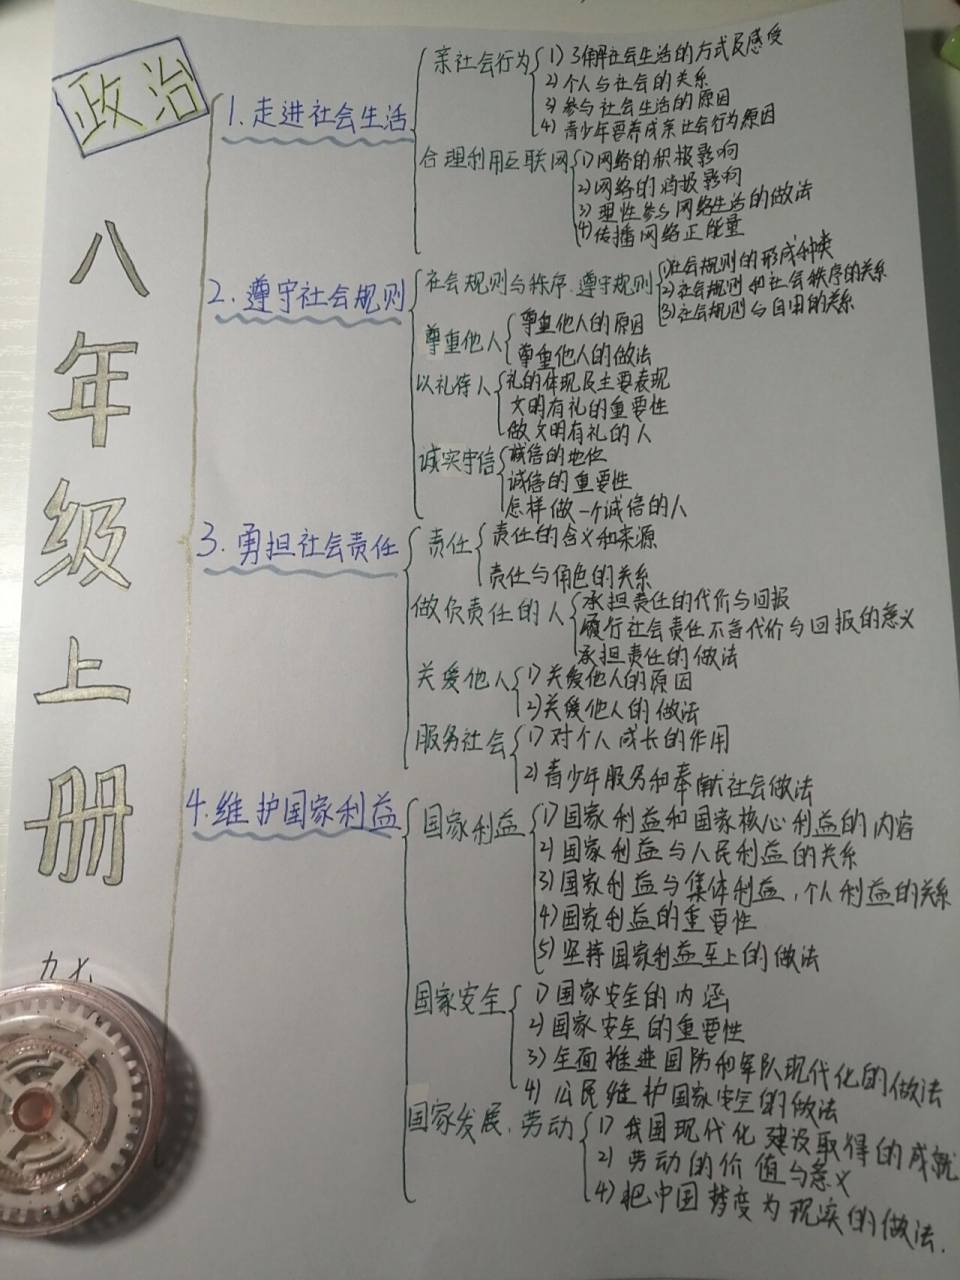 政治
八年级上册
1.走进社会生活
亲社会行为
1)了解社会生活的方式及感受
2)个人与社会的关系
3)参与社会生活的原因
4)青少年要养成亲社会行为原因
合理利用互联网
1)网络的积极影响
2)网络的消极影响
3)理性参与网络生活的做法
4)传播网络正能量
2.遵守社会规则
社会规则与秩序、遵守规则
1)社会规则的形成种类
2)社会规则和社会秩序的关系
3)社会规则与自由的关系
尊重他人
尊重他人的原因
尊重他人的做法
以礼待人
礼的体现及主要表现
文明有礼的重要性
做文明有礼的人
诚实守信
诚信的地位
诚信的重要性
怎样做一个诚信的人
3.勇担社会责任
责任
责任的含义和来源
责任与角色的关系
做负责任的人
承担责任的代价与回报
履行社会责任不言代价与回报的意义
承担责任的做法
关爱他人
1)关爱他人的原因
2)关爱他人的做法
服务社会
1)对个人成长的作用
2)青少年服务和奉献社会做法
4.维护国家利益
国家利益
1)国家利益和国家核心利益的内容
2)国家利益与人民利益的关系
3)国家利益与集体利益,个人利益的关系
4)国家利益的重要性
5)坚持国家利益至上的做法
国家安全
1)国家安全的内涵
2)国家安全的重要性
3)全面推进国防和军队现代化的做法
4)公民维护国家安全的做法
国家发展、劳动
1)我国现代化建设取得的成就
2)劳动的价值与意义
4)把中国梦变为现实的做法.